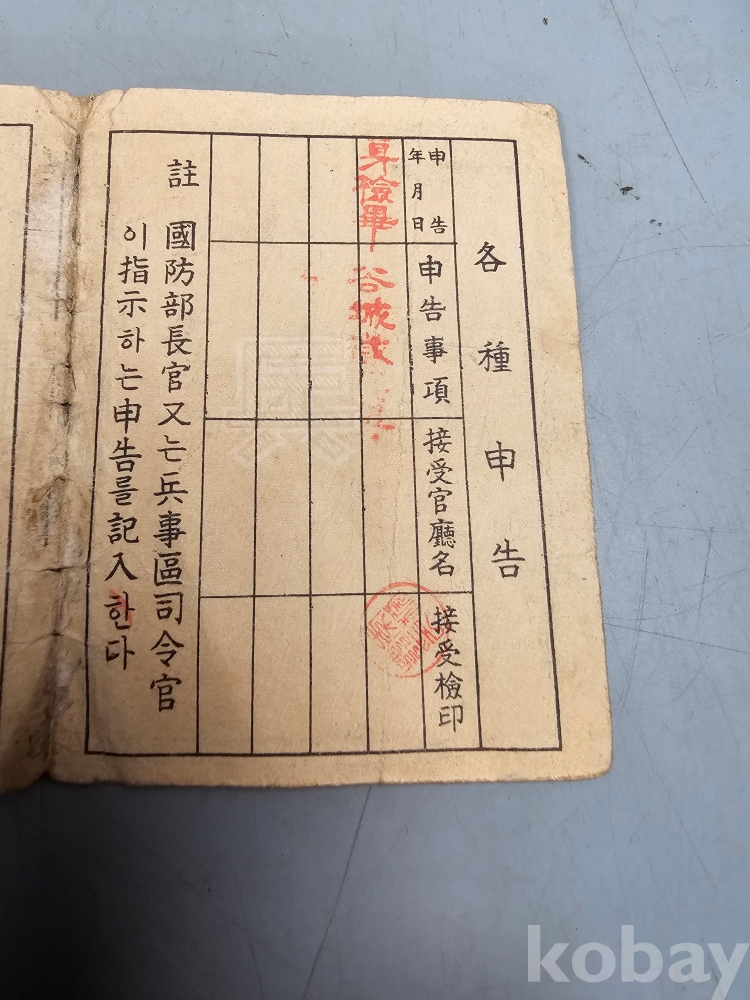 各種申告
申告年月日
申告事項
接受官廳名
接受檢印
身檢畢
谷城
註 國防部長官又는兵事區司令官
이指示하는申告를記入한다
kobay